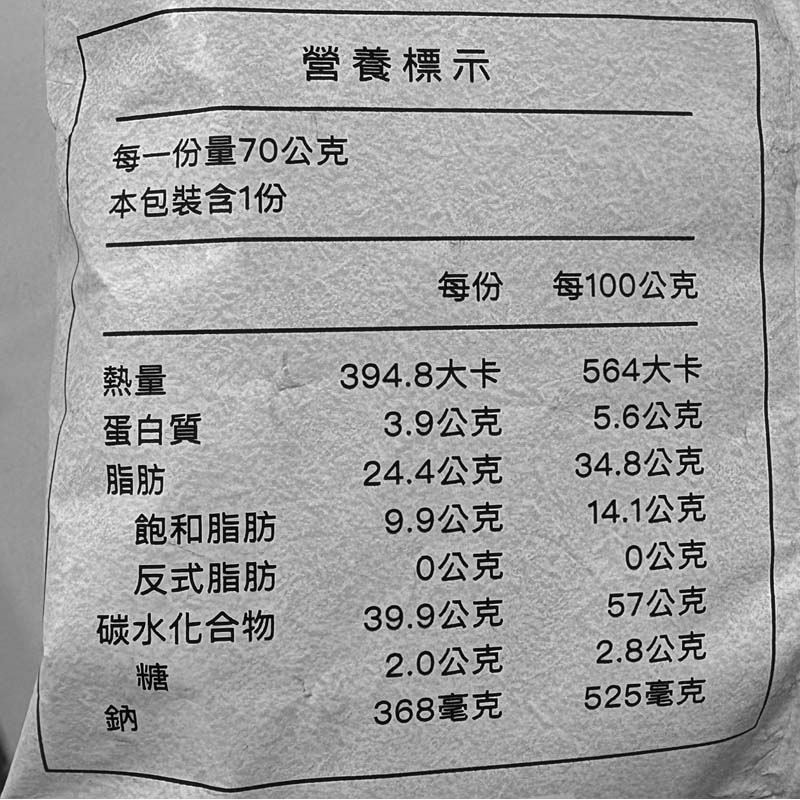 營養標示
每一份量70公克
本包裝含1份
每份 每100公克
熱量 394.8大卡 564大卡
蛋白質 3.9公克 5.6公克
脂肪 24.4公克 34.8公克
飽和脂肪 9.9公克 14.1公克
反式脂肪 0公克 0公克
碳水化合物 39.9公克 57公克
糖 2.0公克 2.8公克
鈉 368毫克 525毫克